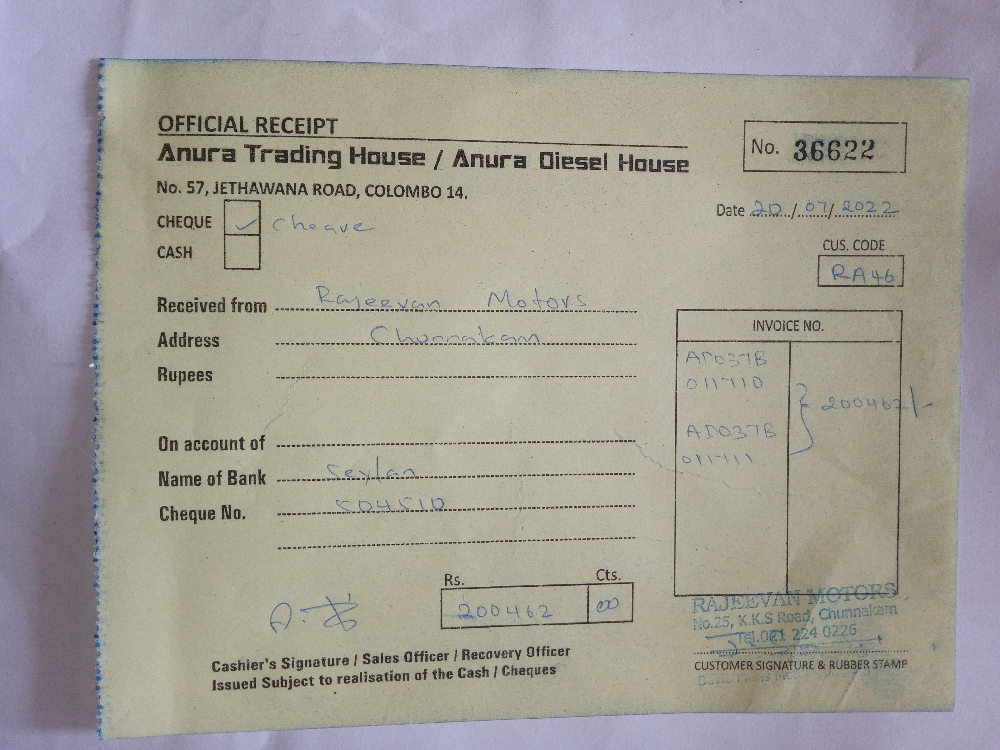 OFFICIAL RECEIPT
Anura Trading House / Anura Diesel House
No. 57, JETHAWANA ROAD, COLOMBO 14.
No. 36622
Date 20/07/2022
CHEQUE ✓ Cheque
CASH
CUS. CODE
RA46
Received from Rajeevan Motors
Address Chunnakam
Rupees
INVOICE NO.
AD037B
011710
200462/-
AD037B
011711
On account of
Name of Bank Seylan
Cheque No. 504510
Rs. Cts.
200462 00
RAJEEVAN MOTORS
No.25, K.K.S Road, Chunnakam
Tel.021 224 0226
Cashier's Signature / Sales Officer / Recovery Officer
Issued Subject to realisation of the Cash / Cheques
CUSTOMER SIGNATURE & RUBBER STAMP